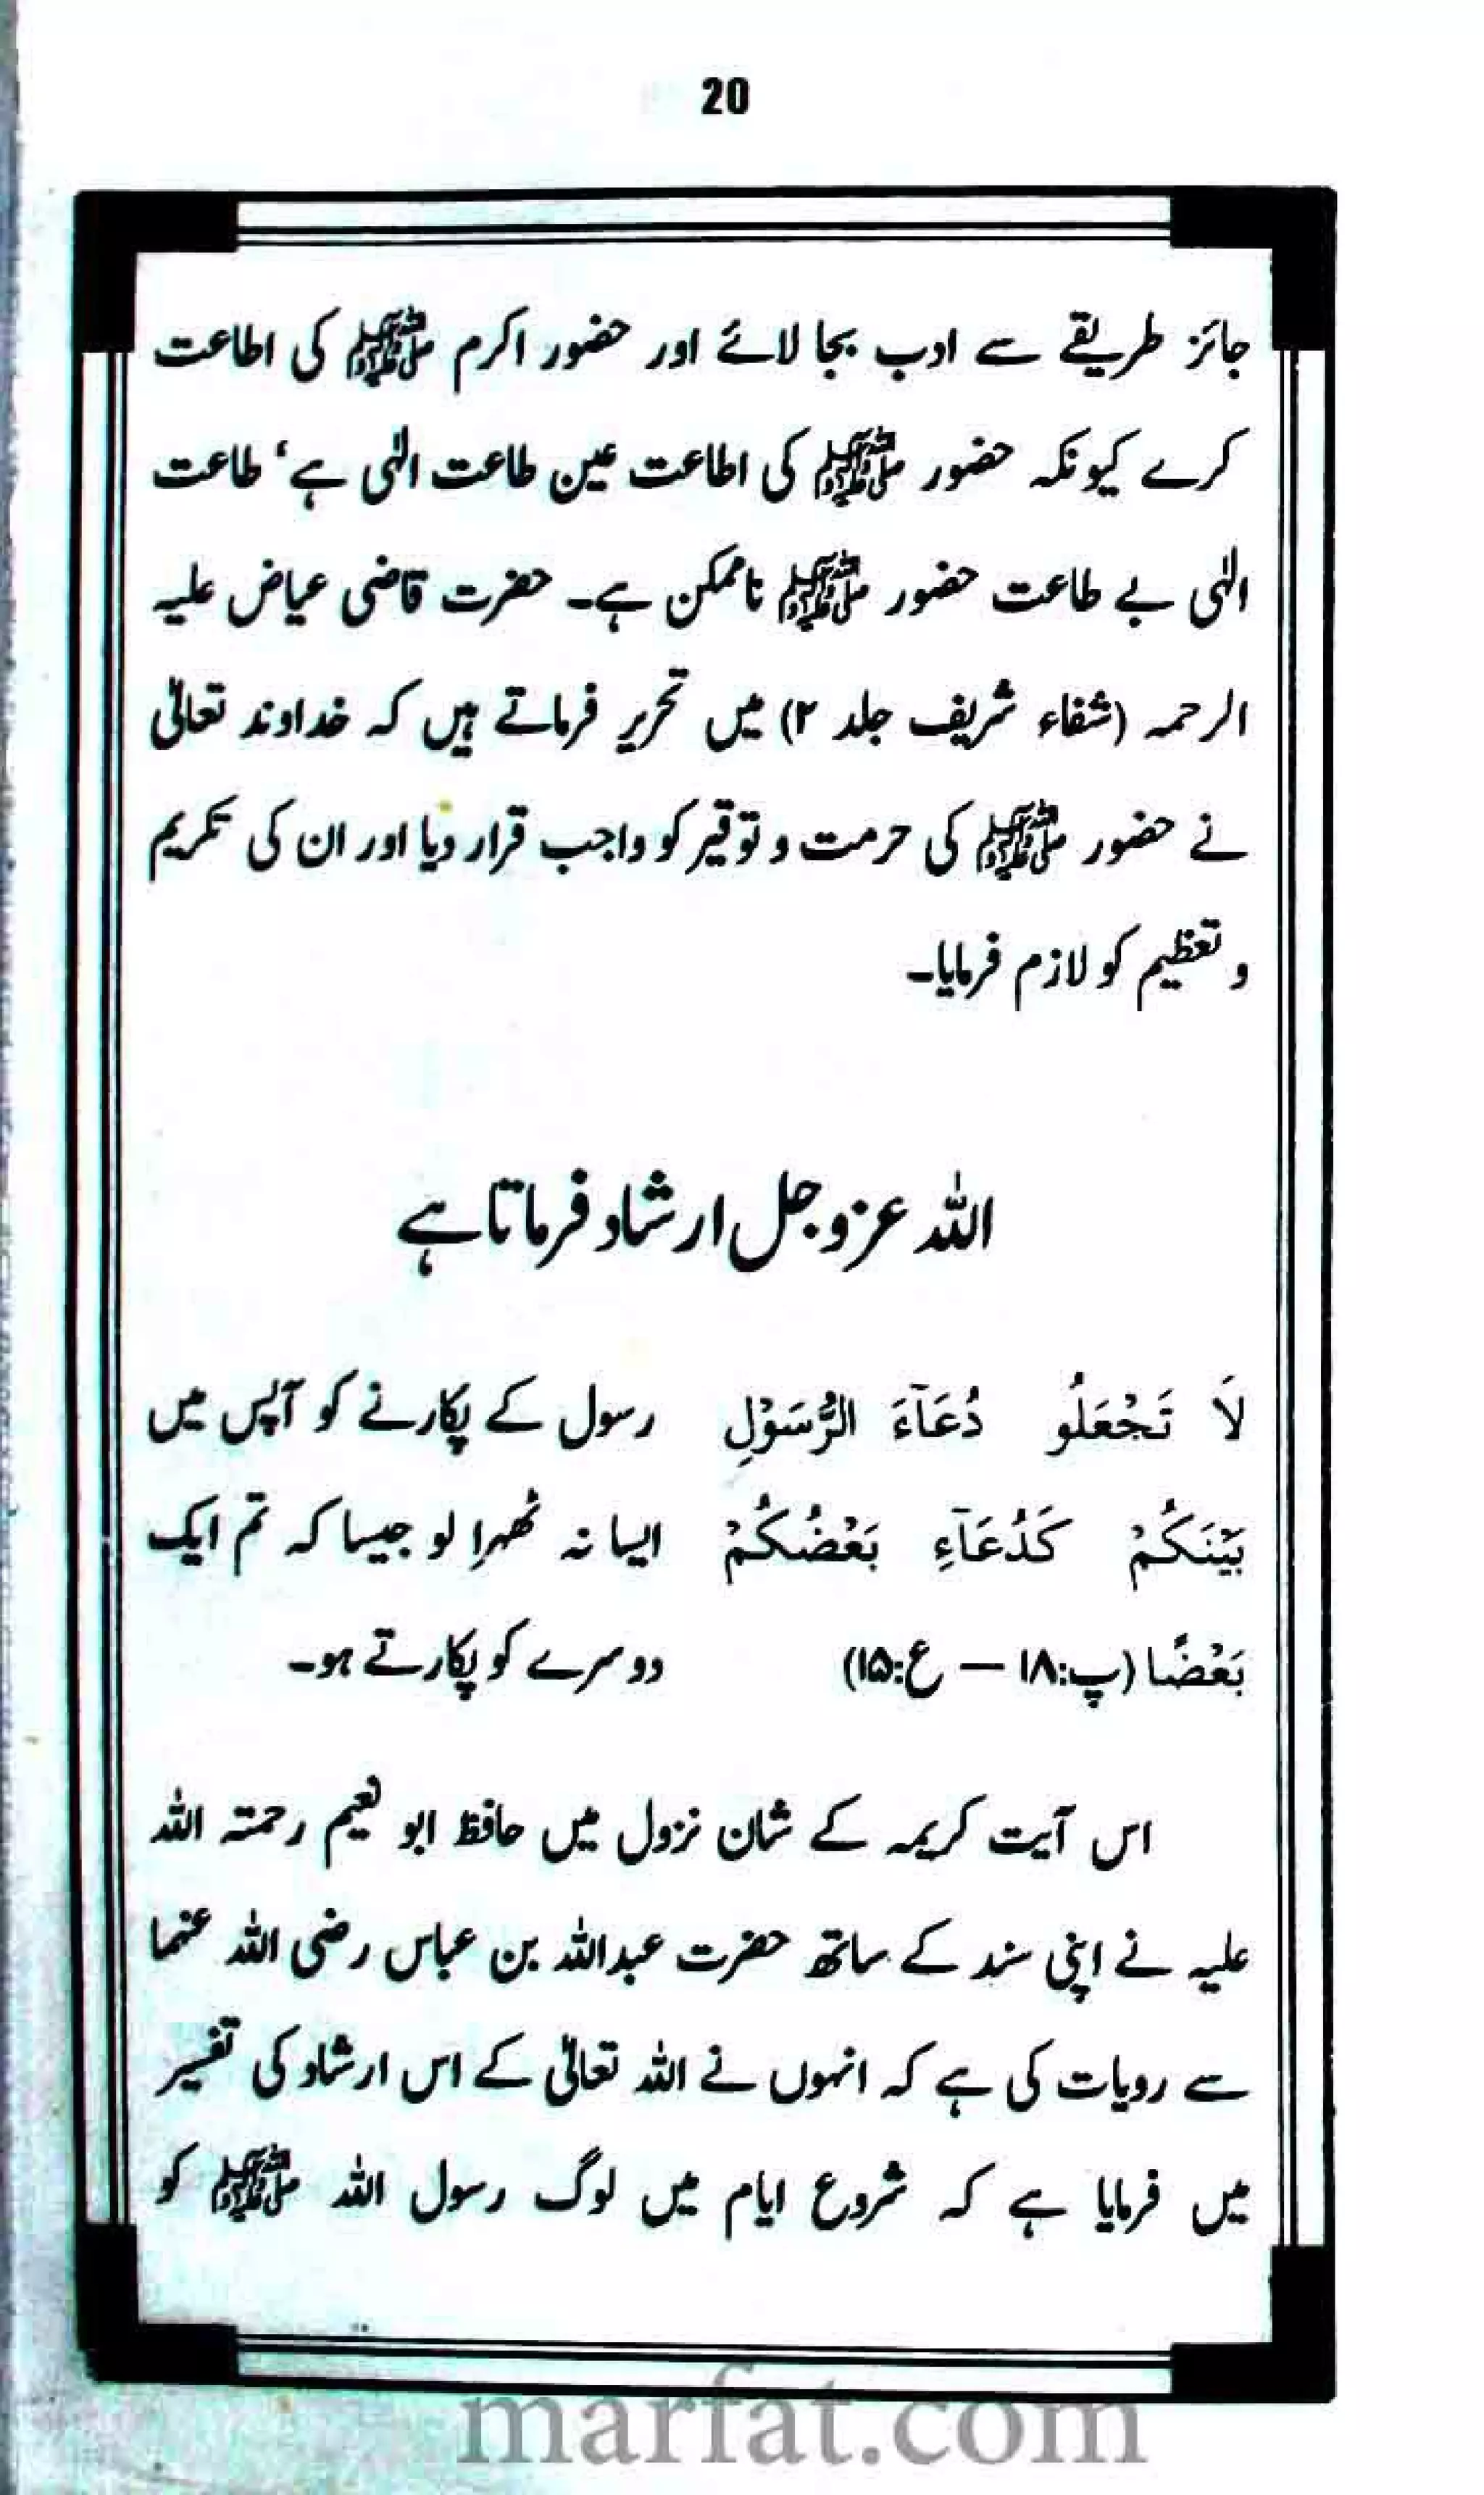 20
جائز طریقے سے ادب بجا لائے اور حضور اکرم ﷺ کی اطاعت
کرے کیونکہ حضور ﷺ کی اطاعت عین طاعت الٰہی ہے‘ طاعت
الٰہی بے طاعت حضور ﷺ ناممکن ہے۔ حضرت قاضی عیاض علیہ
الرحمہ (شفاء شریف جلد ۲) میں تحریر فرماتے ہیں کہ خداوند تعالیٰ
نے حضور ﷺ کی حرمت و توقیر کو واجب قرار دیا اور ان کی تکریم
و تعظیم کو لازم فرمایا۔
اللہ عزوجل ارشاد فرماتا ہے
لَا تَجْعَلُو دُعَآءَ الرَّسُوْلِ رسول کے پکارنے کو آپس میں
بَيْنَكُمْ كَدُعَآءِ بَعْضُكُمْ ایسا نہ ٹھہرا لو جیسا کہ تم ایک
بَعْضًا (پ:۱۸ — ع:۱۵) دوسرے کو پکارتے ہو۔
اس آیت کریمہ کے شان نزول میں حافظ ابو نعیم رحمتہ اللہ
علیہ نے اپنی سند کے ساتھ حضرت عبداللہ بن عباس رضی اللہ عنما
سے رویات کی ہے کہ انہوں نے اللہ تعالیٰ کے اس ارشاد کی تفسیر
میں فرمایا ہے کہ شروع ایام میں لوگ رسول اللہ ﷺ کو
marfat.com